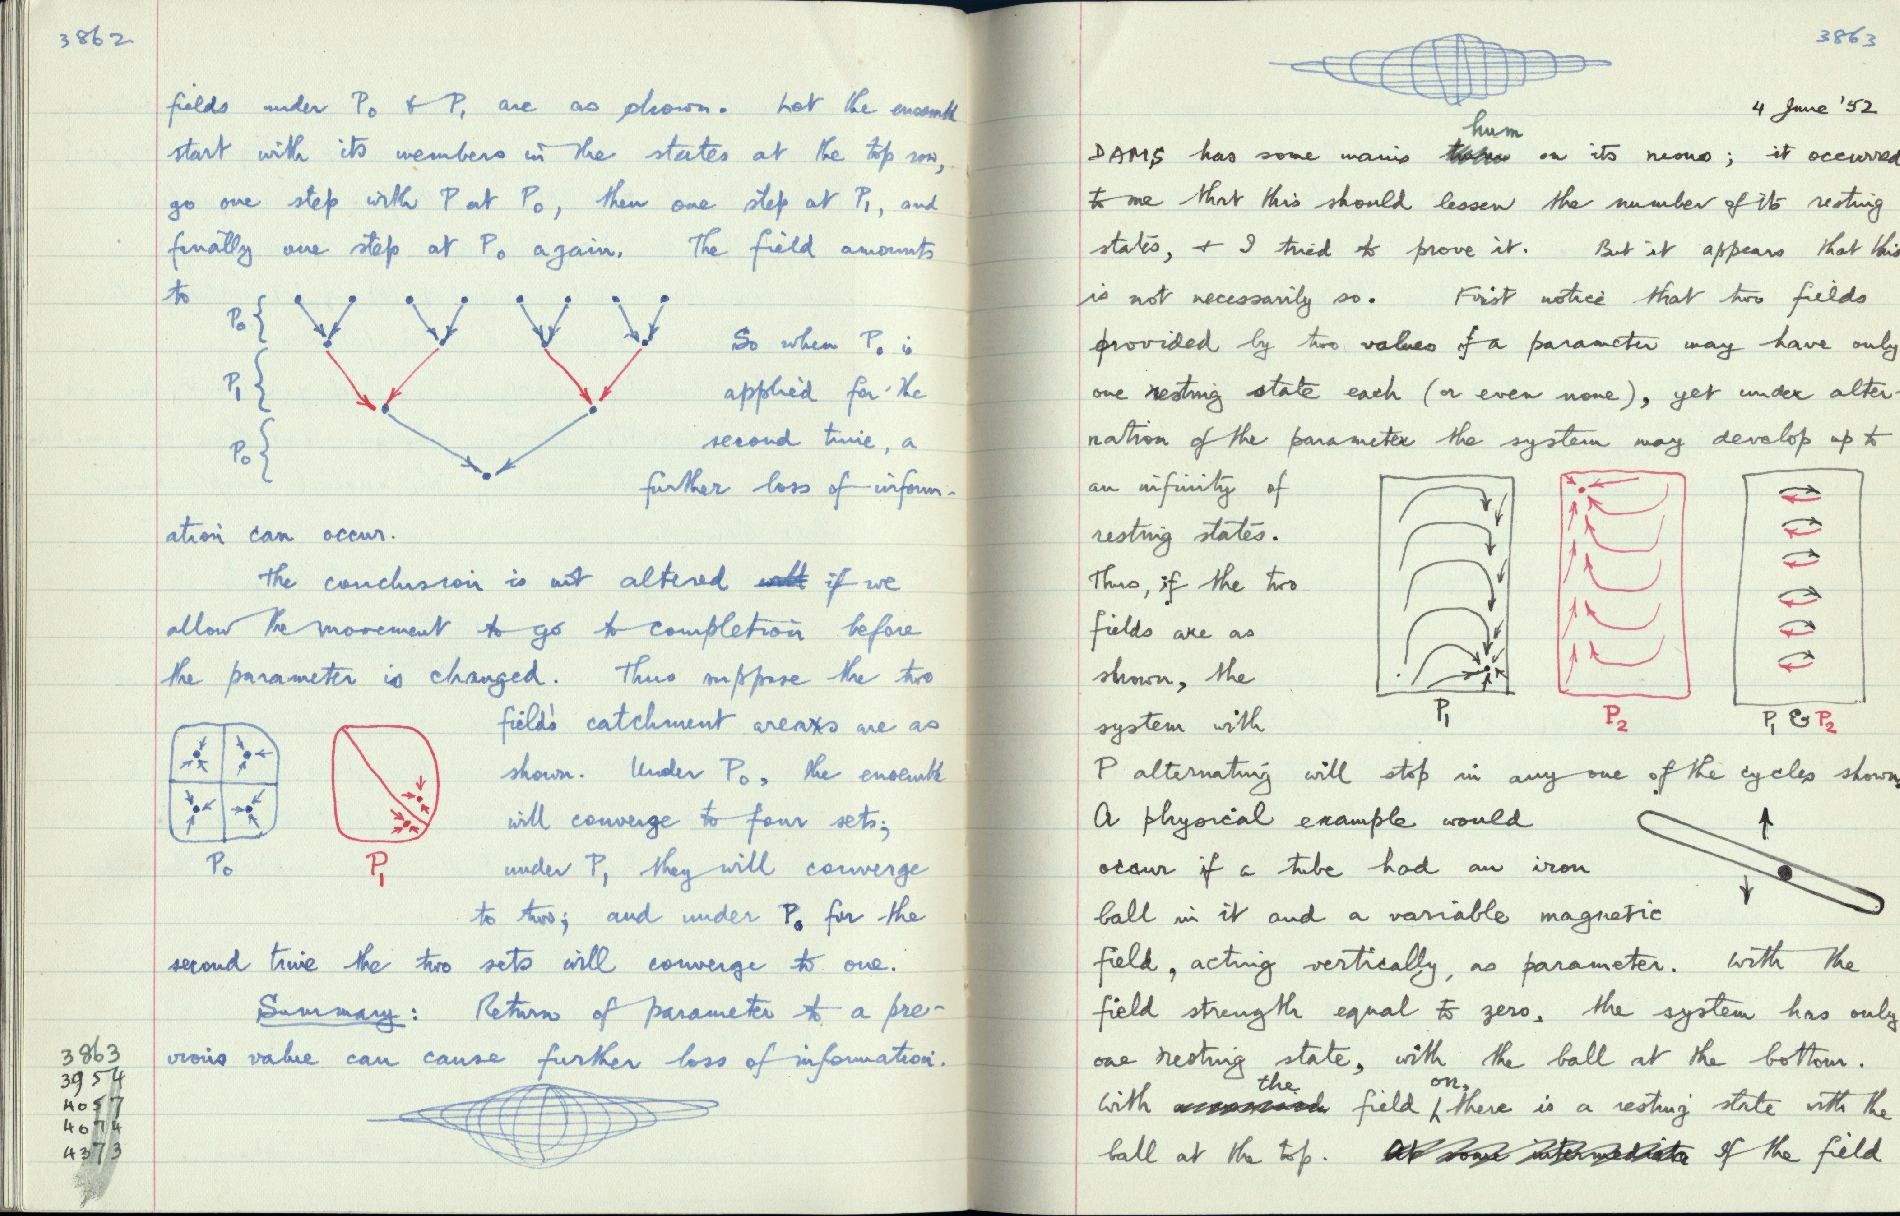 3862
fields under P0 & P1 are as shown. Let the ensemble
start with its members in the states at the top row,
go one step with P at P0, then one step at P1, and
finally one step at P0 again. The field amounts
to
P0
P1
P0
So when P0 is
applied for the
second time, a
further loss of inform-
ation can occur.
The conclusion is not altered if we
allow the movement to go to completion before
the parameter is changed. Thus suppose the two
field's catchment areas are as
shown. Under P0, the ensemble
will converge to four sets;
under P1 they will converge
to two; and under P0 for the
second time the two sets will converge to one.
P0
P1
Summary: Return of parameter to a pre-
vious value can cause further loss of information.
3863
3954
4057
4074
4373
3863
4 June '52
DAMS has some mains hum on its neons; it occurred
to me that this should lessen the number of its resting
states, & I tried to prove it. But it appears that this
is not necessarily so. First notice that two fields
provided by two values of a parameter may have only
one resting state each (or even none), yet under alter-
nation of the parameter the system may develop up to
an infinity of
resting states.
Thus, if the two
fields are as
shown, the
system with
P1
P2
P1 & P2
P alternating will stop in any one of the cycles shown.
A physical example would
occur if a tube had an iron
ball in it and a variable magnetic
field, acting vertically, as parameter. With the
field strength equal to zero, the system has only
one resting state, with the ball at the bottom.
With the field on, there is a resting state with the
ball at the top. If the field